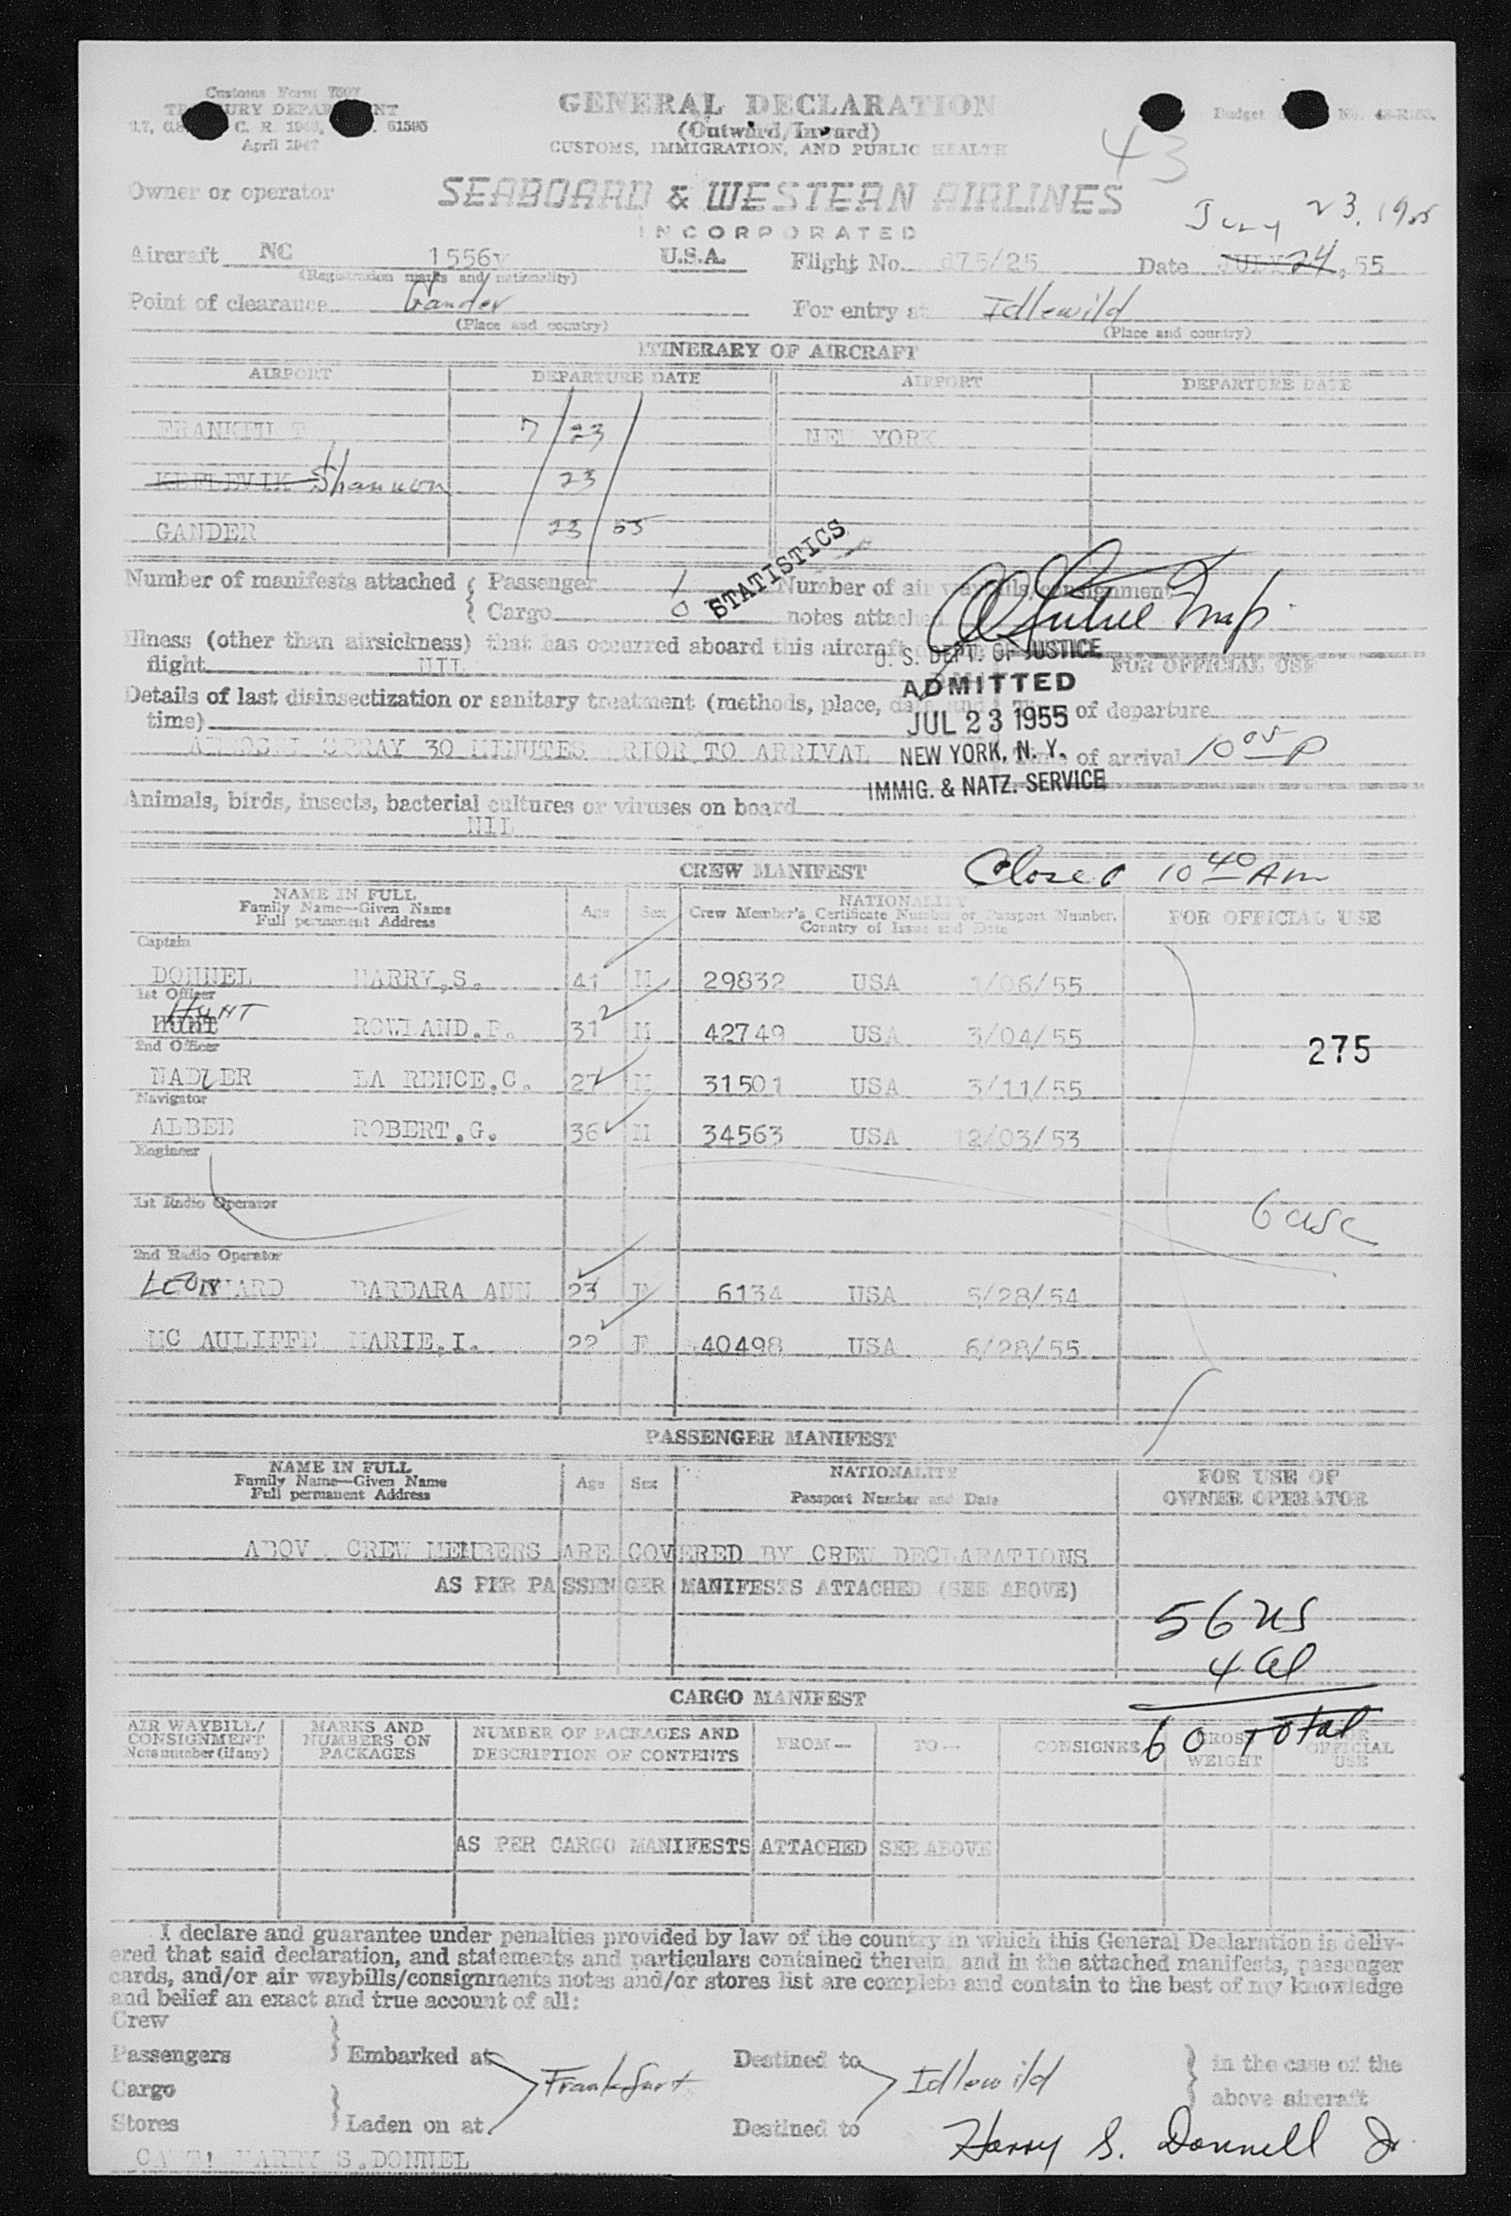 Customs Form 7507
GENERAL DECLARATION
(Outward/Inward)
CUSTOMS, IMMIGRATION, AND PUBLIC HEALTH
April 1947
61593
43
Owner or operator SEABOARD & WESTERN AIRLINES
INCORPORATED
July 23, 1955
Aircraft NC 1556v U.S.A. Flight No. 675/25 Date JULY 24, 55
(Registration marks and nationality)
Point of clearance Gander For entry at Idlewild
(Place and country) (Place and country)
ITINERARY OF AIRCRAFT
AIRPORT DEPARTURE DATE AIRPORT DEPARTURE DATE
7/23/ NEW YORK
KEFLEVIK Shannon 23
GANDER 23/55
STATISTICS
Number of manifests attached { Passenger 1 Number of air waybills/consignment
Cargo 0 notes attached
Illness (other than airsickness) that has occurred aboard this aircraft
flight NIL
U. S. DEPT. OF JUSTICE
FOR OFFICIAL USE
ADMITTED
Details of last disinsectization or sanitary treatment (methods, place, date and
time)
JUL 23 1955
of departure
SPRAY 30 MINUTES PRIOR TO ARRIVAL
NEW YORK, N. Y.
Time of arrival 10 05 P
IMMIG. & NATZ. SERVICE
Animals, birds, insects, bacterial cultures or viruses on board
NIL
CREW MANIFEST Closed 10 40 Am
NAME IN FULL
Family Name—Given Name
Full permanent Address
Age Sex
NATIONALITY
Crew Member's Certificate Number or Passport Number.
Country of Issue and Date
FOR OFFICIAL USE
Captain
DONNEL HARRY.S. 41 M 29832 USA 1/06/55
1st Officer
HUNT
HUNT ROWLAND.P. 31 M 42749 USA 3/04/55
275
2nd Officer
NADLER LA RENCE.C. 27 M 31501 USA 3/11/55
Navigator
ALBEE ROBERT.G. 36 M 34563 USA 12/03/53
Engineer
1st Radio Operator
6 usc
2nd Radio Operator
LEONARD BARBARA ANN 23 F 6134 USA 5/28/54
MC AULIFFE MARIE.I. 22 F 40498 USA 6/28/55
PASSENGER MANIFEST
NAME IN FULL
Family Name—Given Name
Full permanent Address
Age Sex
NATIONALITY
Passport Number and Date
FOR USE OF
OWNER OPERATOR
ABOV CREW MEMBERS ARE COVERED BY CREW DECLARATIONS
AS PER PASSENGER MANIFESTS ATTACHED (SEE ABOVE)
56 us
4 al
60 Total
CARGO MANIFEST
AIR WAYBILL/
CONSIGNMENT
Note number (if any)
MARKS AND
NUMBERS ON
PACKAGES
NUMBER OF PACKAGES AND
DESCRIPTION OF CONTENTS
FROM—
TO—
CONSIGNEE
GROSS
WEIGHT
FOR
OFFICIAL
USE
AS PER CARGO MANIFESTS ATTACHED SEE ABOVE
I declare and guarantee under penalties provided by law of the country in which this General Declaration is deliv-
ered that said declaration, and statements and particulars contained therein, and in the attached manifests, passenger
cards, and/or air waybills/consignments notes and/or stores list are complete and contain to the best of my knowledge
and belief an exact and true account of all:
Crew
Passengers } Embarked at Frankfurt Destined to Idlewild } in the case of the
Cargo above aircraft
Stores } Laden on at Destined to
Harry S. Donnell Jr
HARRY S.DONNEL